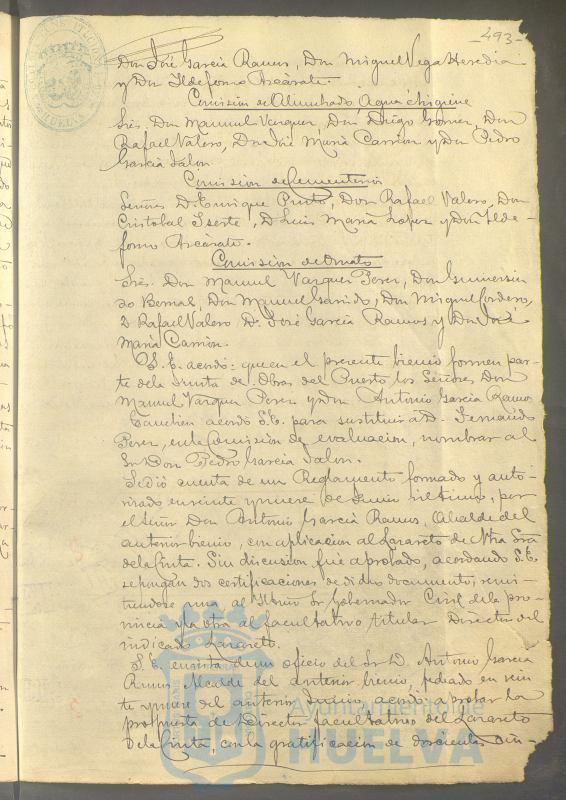 493
Don José Garcia Ramos, Don Miguel Vega Heredia
y Don Ildefonso Azcárate.
Comision de Alumbrado Agua é higiene
Sres. Don Manuel Vazquez, Don Diego Gomez, Don
Rafael Valero, Don José Maria Carrion y Don Pedro
Garcia Jalon.
Comision de Cementerios
Señores D. Enrique Prieto, Don Rafael Valero, Don
Cristobal Iserte, D. Luis Maria Lopez y Don Ilde-
fonso Azcárate.
Comision de Ornato
Sres. Don Manuel Vazquez Perez, Don Gumersin
do Bernal, Don Manuel Garrido, Don Miguel Cordero,
D. Rafael Valero D. José Garcia Ramos y Don José
Maria Carrion.
S. E. acordó: que en el presente bienio formen par-
te de la Junta de Obras del Puerto los Señores Don
Manuel Vazquez Perez y Don Antonio Garcia Ramos
Tambien acordó S.E. para sustituir á D. Fernando
Perez, en la Comision de evaluacion, nombrar al
Sr. Don Pedro Garcia Jalon.
Se dió cuenta de un Reglamento formado y auto-
rizado en veinte y nueve de Junio último, por
el Señor Don Antonio Garcia Ramos, Alcalde del
anterior bienio, con aplicacion al Lazareto de Ntra Sra
de la Cinta. Sin discusion fué aprobado, acordando S.E.
se pongan dos certificaciones de dicho documento, remi-
tiendose una al Iltmo Sr Gobernador Civil de la pro-
vincia y la otra al facultativo titular Director del
indicado Lazareto.
S. E. en vista de un oficio del Sr D. Antonio Garcia
Ramos Alcalde del anterior bienio, fechado en vein
te y nueve del anterior Junio, acordó aprobar la
propuesta de Director facultativo del Lazareto
de la Cinta, con la gratificacion de doscientas cin-
Ayuntamiento de
HUELVA